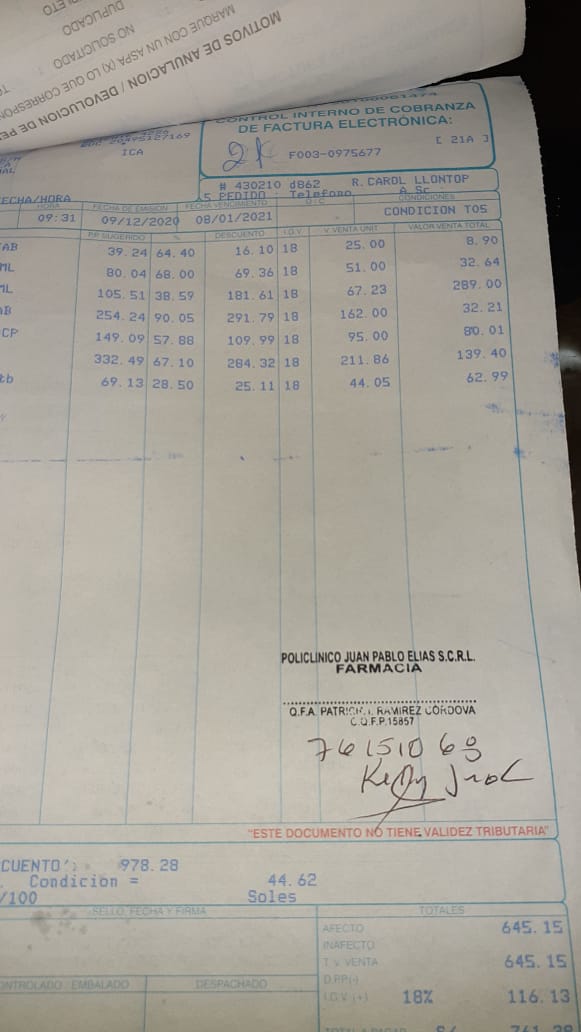 MOTIVOS DE ANULACION / DEVOLUCION DE PE
MARQUE CON UN ASPA (X) LO QUE CORRESPON
NO SOLICITADO
DUPLICADO
ICA
CONTROL INTERNO DE COBRANZA
DE FACTURA ELECTRÓNICA:
[ 21A ]
F003-0975677
# 430210 d862 R. CAROL LLONTOP
PEDIDO : Telefono A. Sc
FECHA/HORA
HORA FECHA DE EMISION FECHA VENCIMIENTO O / C CONDICIONES
09:31 09/12/2020 08/01/2021 CONDICION T05
P.P. SUGERIDO % DESCUENTO I.G.V. V. VENTA UNIT VALOR VENTA TOTAL
AB 39.24 64.40 16.10 18 25.00 8.90
ML 80.04 68.00 69.36 18 51.00 32.64
ML 105.51 38.59 181.61 18 67.23 289.00
AB 254.24 90.05 291.79 18 162.00 32.21
CP 149.09 57.88 109.99 18 95.00 80.01
332.49 67.10 284.32 18 211.86 139.40
tb 69.13 28.50 25.11 18 44.05 62.99
POLICLINICO JUAN PABLO ELIAS S.C.R.L.
FARMACIA
Q.F.A. PATRICIA I. RAMIREZ CORDOVA
C.Q.F.P. 15857
"ESTE DOCUMENTO NO TIENE VALIDEZ TRIBUTARIA"
CUENTO': 978.28
Condicion = 44.62
/100 Soles
SELLO, FECHA Y FIRMA TOTALES
AFECTO 645.15
INAFECTO
T. V. VENTA 645.15
D.P.P.(-)
CONTROLADO EMBALADO DESPACHADO
I.G.V. (+) 18% 116.13